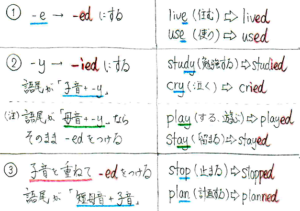 ① -e → -edにする
live (住む) ⇨ lived
use (使う) ⇨ used
② -y → -iedにする
語尾が「子音+-y」
study (勉強する) ⇨ studied
cry (泣く) ⇨ cried
(注) 語尾が「母音+-y」なら
そのまま -edをつける
play (する、遊ぶ) ⇨ played
stay (留まる) ⇨ stayed
③ 子音を重ねて -edをつける
語尾が「短母音+子音」
stop (止まる) ⇨ stopped
plan (計画する) ⇨ planned